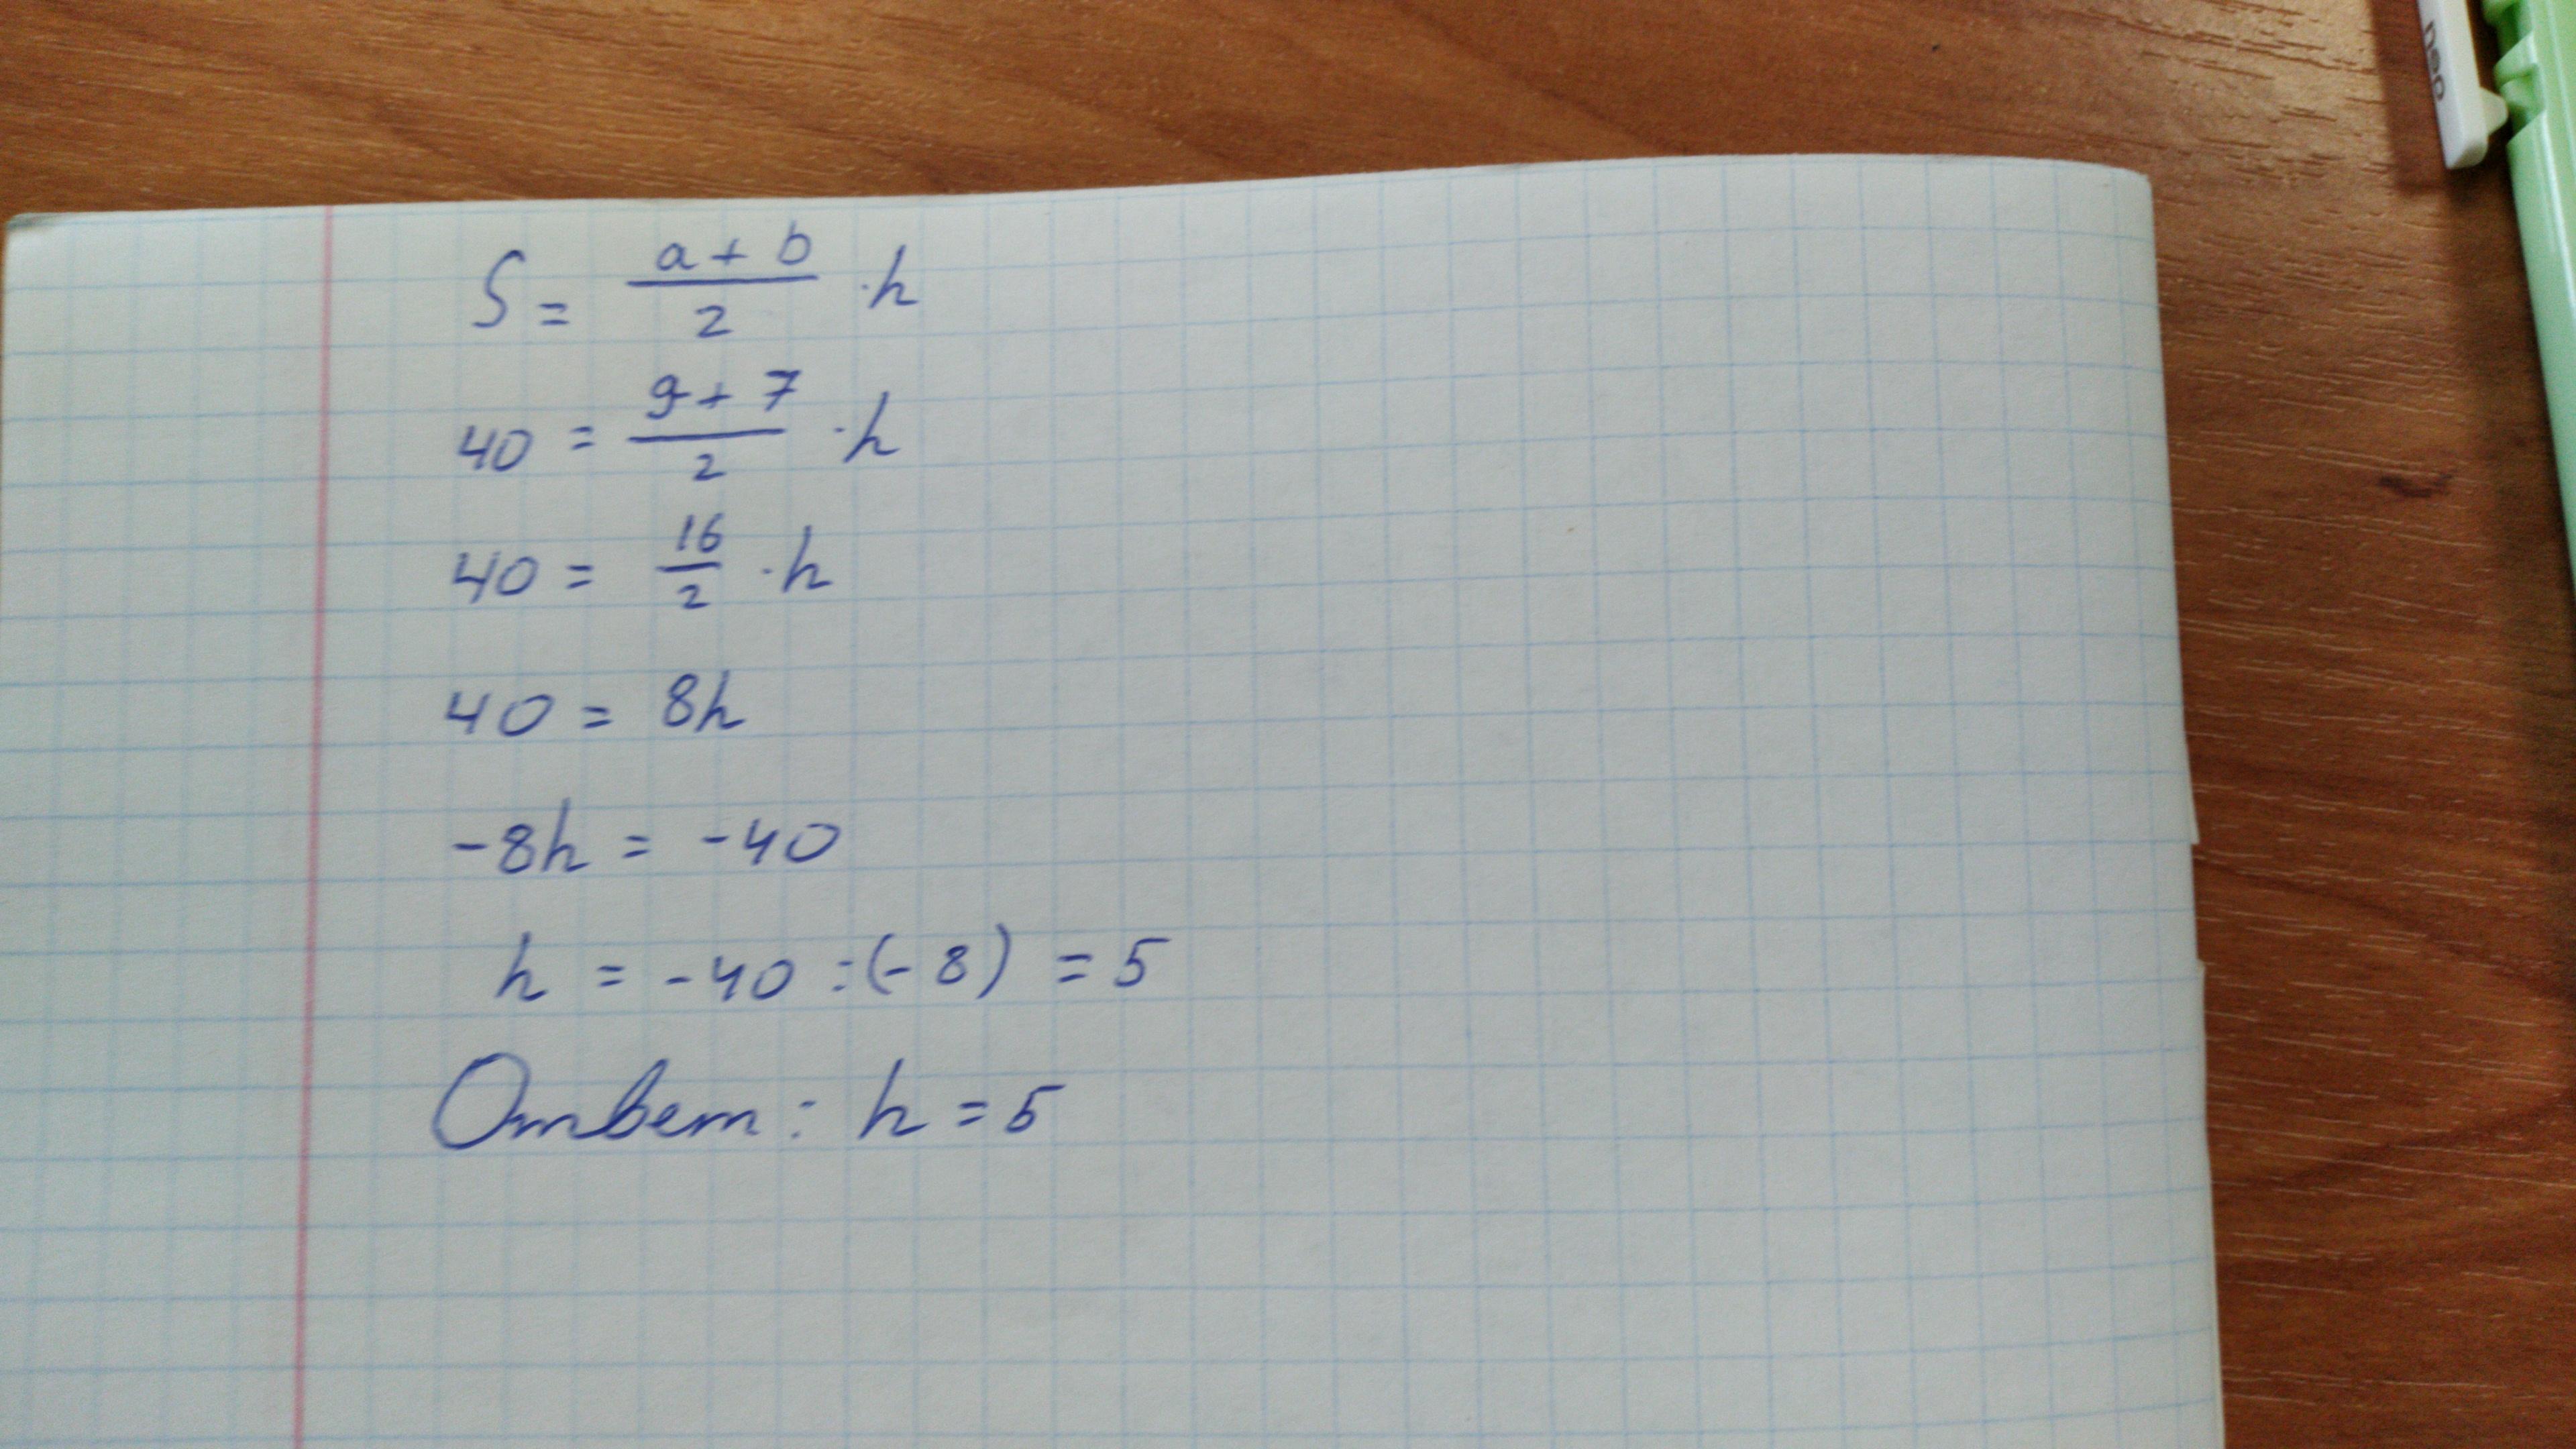 S = (a + b)/2 · h
40 = (9 + 7)/2 · h
40 = 16/2 · h
40 = 8h
-8h = -40
h = -40 : (-8) = 5
Ответ: h = 5